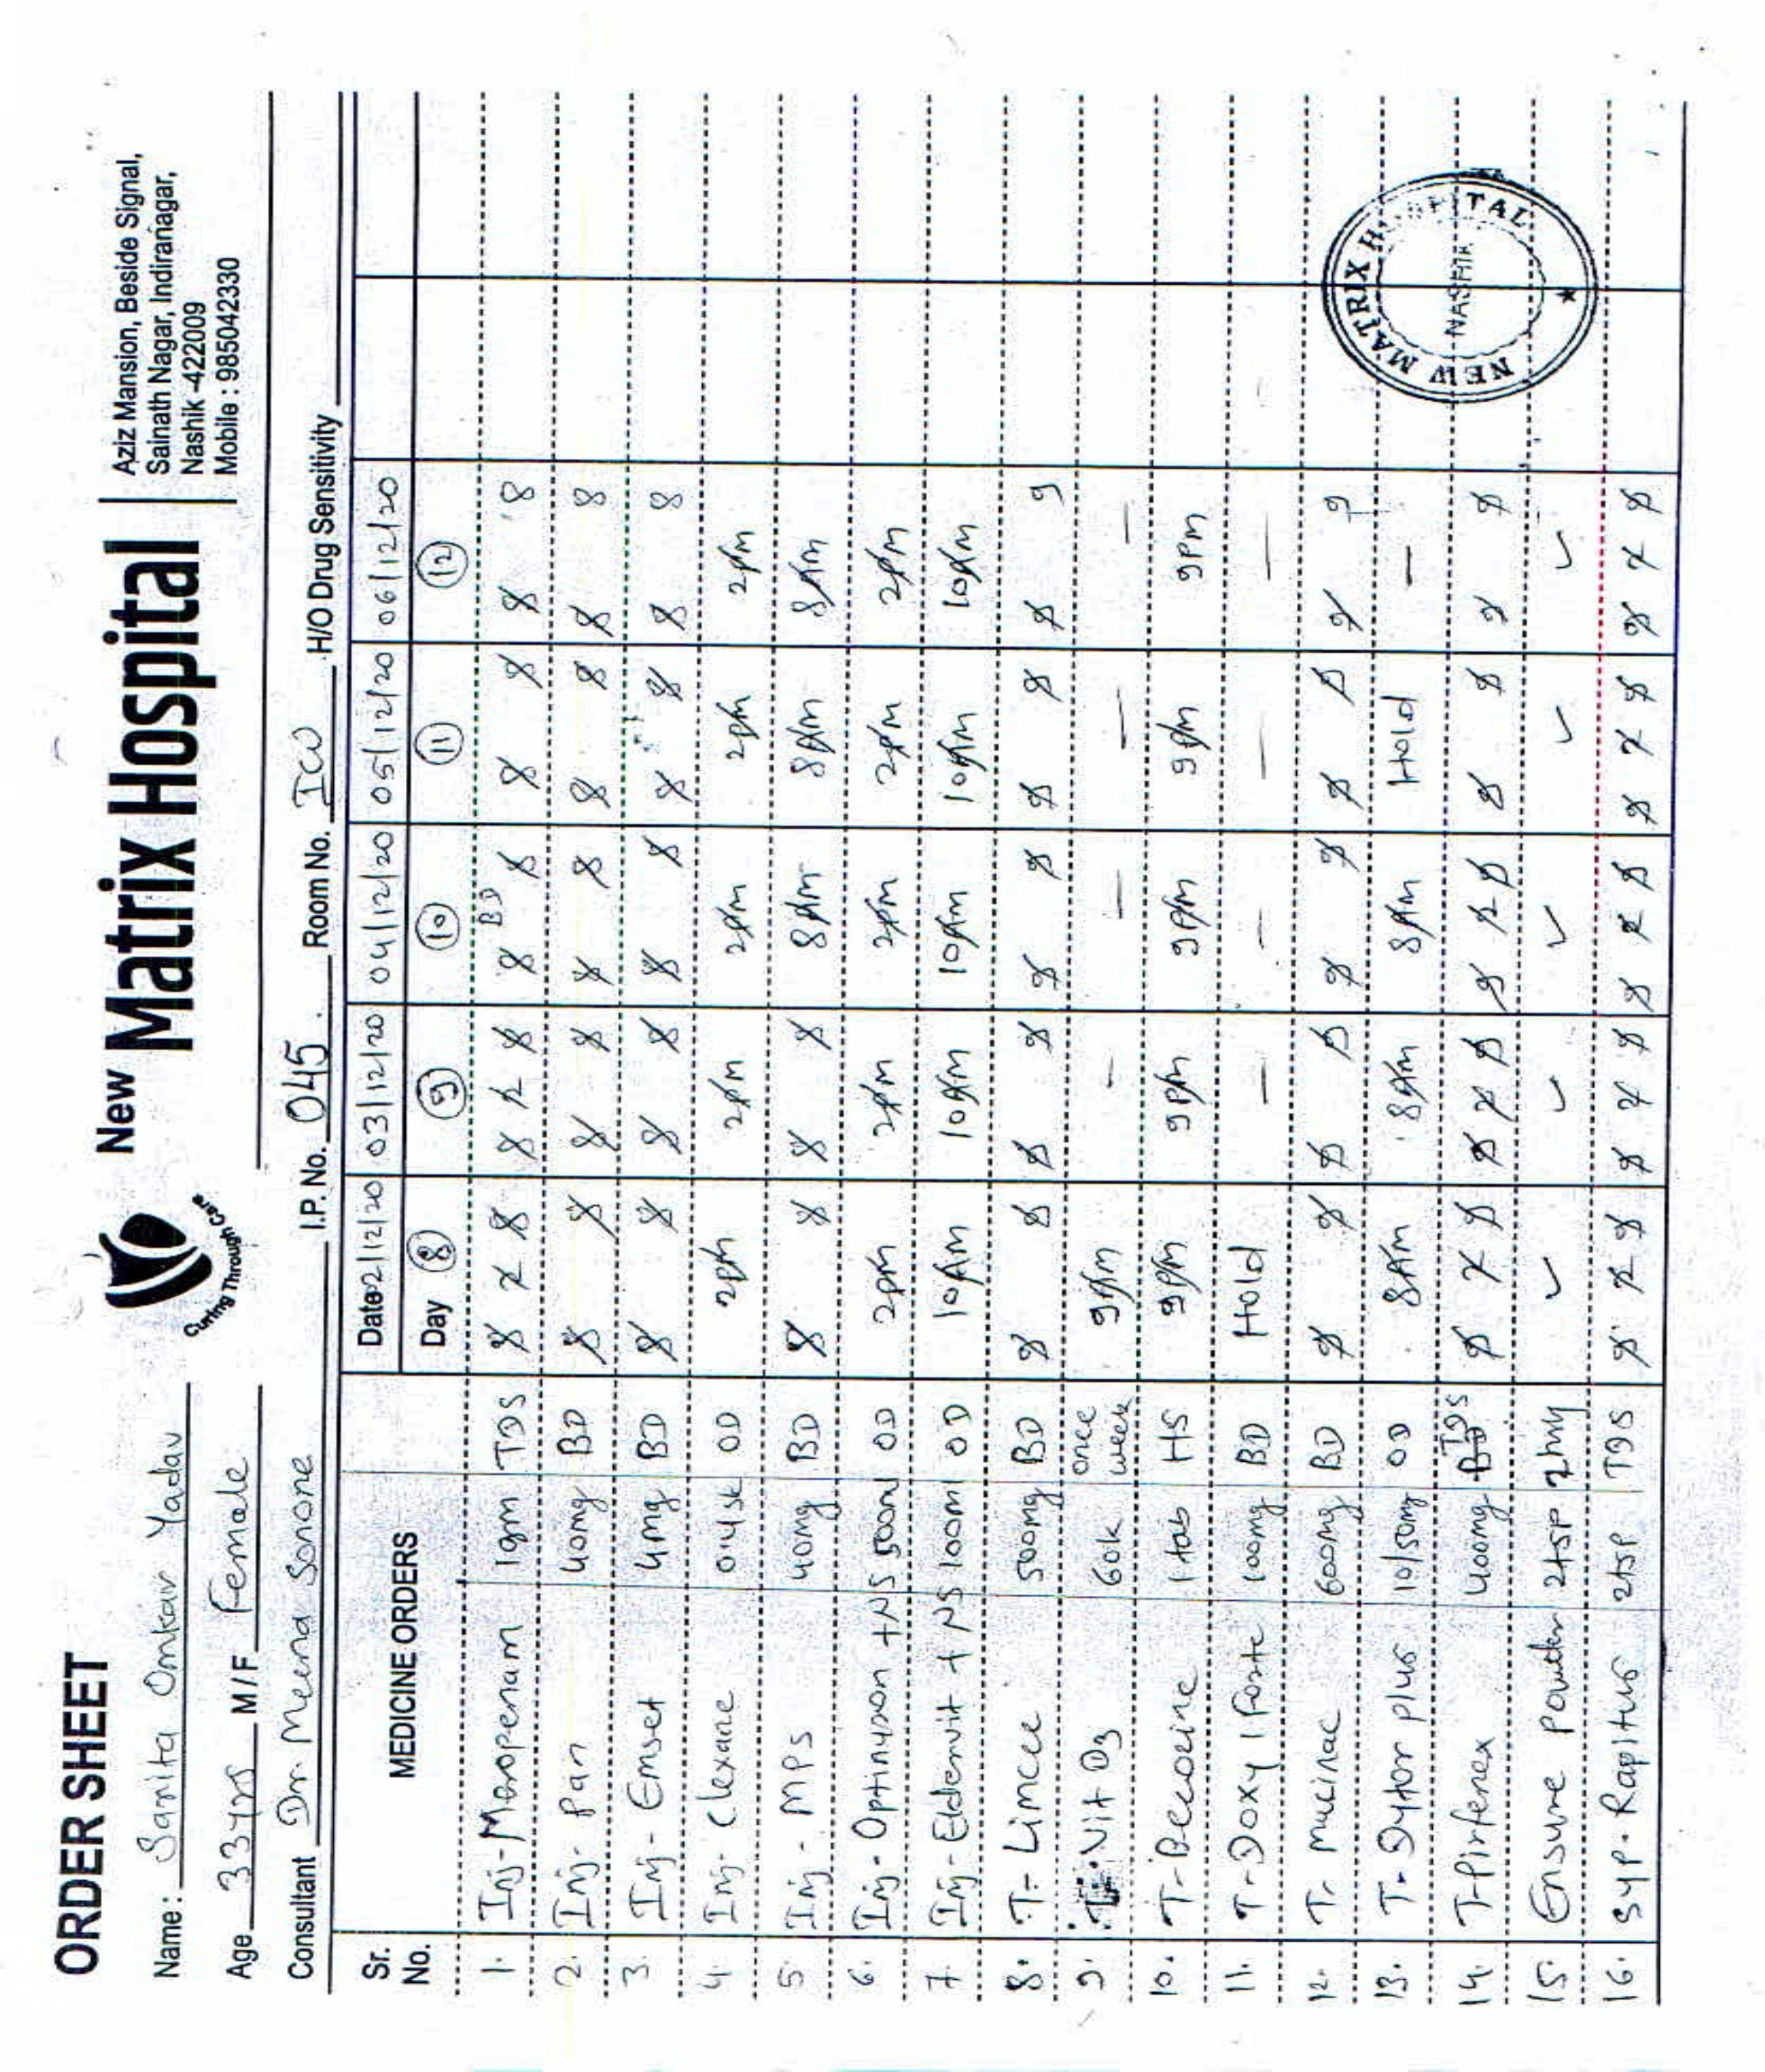 ORDER SHEET
New Matrix Hospital
Curing Through Care
Aziz Mansion, Beside Signal,
Sainath Nagar, Indiranagar,
Nashik-422009
Mobile : 985042330
Name : Sarita Omkar Yadav
Age 33yrs M/F Female
Consultant Dr. Meena Sonone I.P. No. 045 Room No. ICU H/O Drug Sensitivity
Sr. No. MEDICINE ORDERS Date 02/12/20 03/12/20 04/12/20 05/12/20 06/12/20
Day 8 9 10 11 12
1. Inj- Meropenam 1gm TDS 8 2 8 8 2 8 8 BD 8 8 8 8 8
2. Inj- Pan 40mg BD 8 8 8 8 8 8 8 8 8 8
3. Inj- Emset 4mg BD 8 8 8 8 8 8 8 8 8 8
4. Inj- Clexane 0.4 sc OD 2pm 2pm 2pm 2pm 2pm
5. Inj- MPS 40mg BD 8 8 8 8 8Am 8Am 8Am
6. Inj- Optinuron +NS 500ml OD 2pm 2pm 2pm 2pm 2pm
7. Inj- Eldervit + NS 100ml OD 10Am 10Am 10Am 10Am 10Am
8. T- Limcee 500mg BD 9
9. Vit D3 60k once week 9Am — — — —
10. T- Becozine 1 tab HS 9Pm 9Pm 9Pm 9Pm 9Pm
11. T- Doxy 1 Forte 100mg BD Hold — — — —
12. T- Mucinac 600mg BD 9
13. T- Dytor plus 10/50mg OD 8Am 8Am 8Am Hold —
14. T- Pirfenex 400mg BD TDS
15. Ensure Powder 2tsp 2hrly ✓ ✓ ✓ ✓ ✓
16. Syp- Rapitus 2tsp TDS
NEW MATRIX HOSPITAL
NASHIK